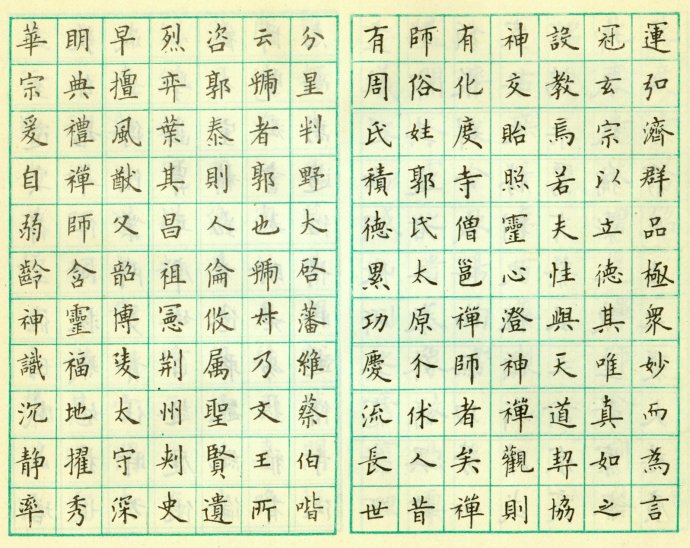 運弘濟群品極衆妙而為言
冠玄宗以立德其唯真如之
設教焉若夫性與天道契協
神交貽照靈心澄神禪觀則
有化度寺僧邕禪師者矣禪
師俗姓郭氏太原介休人昔
有周氏積德累功慶流長世
分星判野大啓藩維蔡伯喈
云虢者郭也虢叔乃文王所
咨郭泰則人倫攸属聖賢遺
烈弈葉其昌祖憲荆州刺史
早擅風猷父韶博陵太守深
明典禮禪師含靈福地擢秀
華宗爰自弱齡神識沉静率